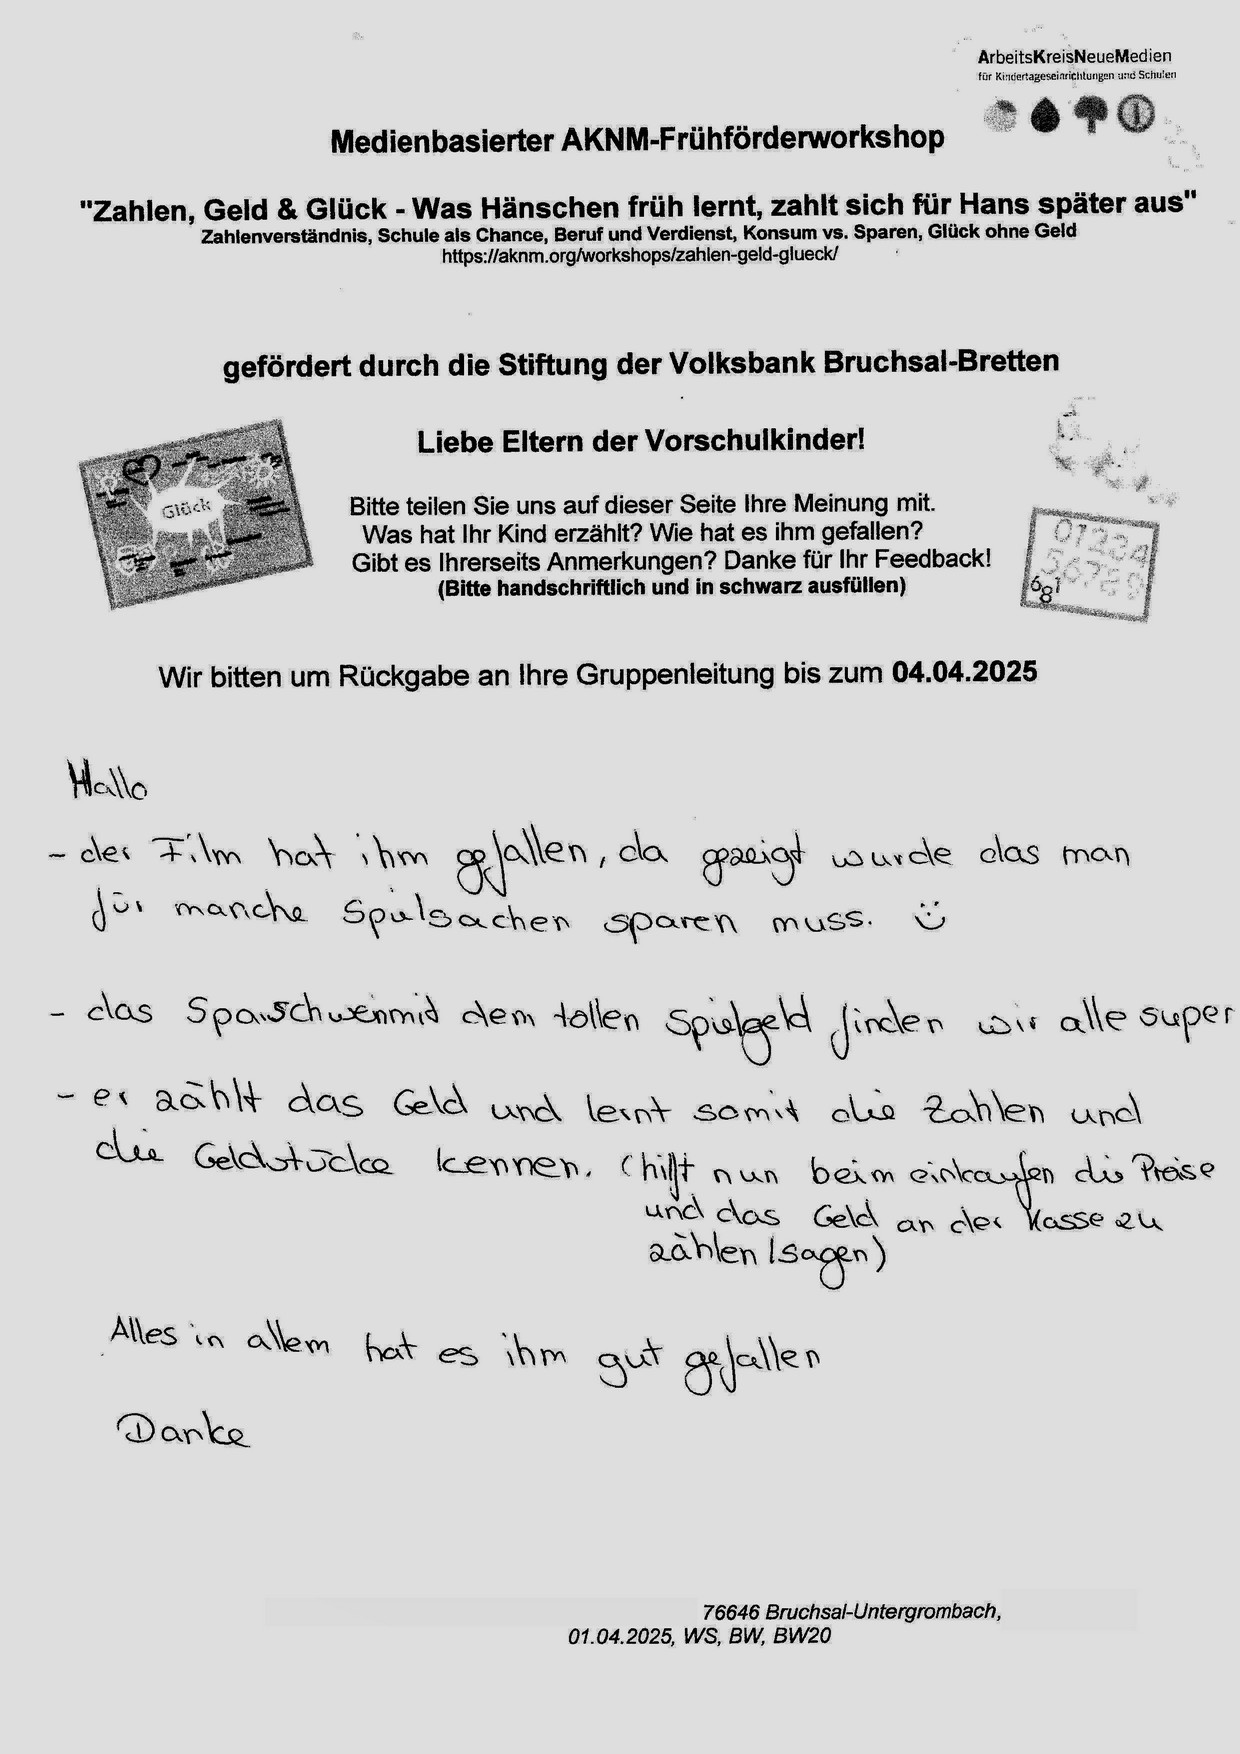 ArbeitsKreisNeueMedien
für Kindertageseinrichtungen und Schulen
Medienbasierter AKNM-Frühförderworkshop
"Zahlen, Geld & Glück - Was Hänschen früh lernt, zahlt sich für Hans später aus"
Zahlenverständnis, Schule als Chance, Beruf und Verdienst, Konsum vs. Sparen, Glück ohne Geld
https://aknm.org/workshops/zahlen-geld-glueck/
gefördert durch die Stiftung der Volksbank Bruchsal-Bretten
Liebe Eltern der Vorschulkinder!
Glück
Bitte teilen Sie uns auf dieser Seite Ihre Meinung mit.
Was hat Ihr Kind erzählt? Wie hat es ihm gefallen?
Gibt es Ihrerseits Anmerkungen? Danke für Ihr Feedback!
(Bitte handschriftlich und in schwarz ausfüllen)
01234
56789
681
Wir bitten um Rückgabe an Ihre Gruppenleitung bis zum 04.04.2025
Hallo
- der Film hat ihm gefallen, da gezeigt wurde das man
für manche Spielsachen sparen muss. :)
- das Sparschwein mit dem tollen Spielgeld finden wir alle super
- er zählt das Geld und lernt somit die Zahlen und
die Geldstücke kennen. (hilft nun beim einkaufen die Preise
und das Geld an der Kasse zu
zählen/sagen)
Alles in allem hat es ihm gut gefallen
Danke
76646 Bruchsal-Untergrombach,
01.04.2025, WS, BW, BW20